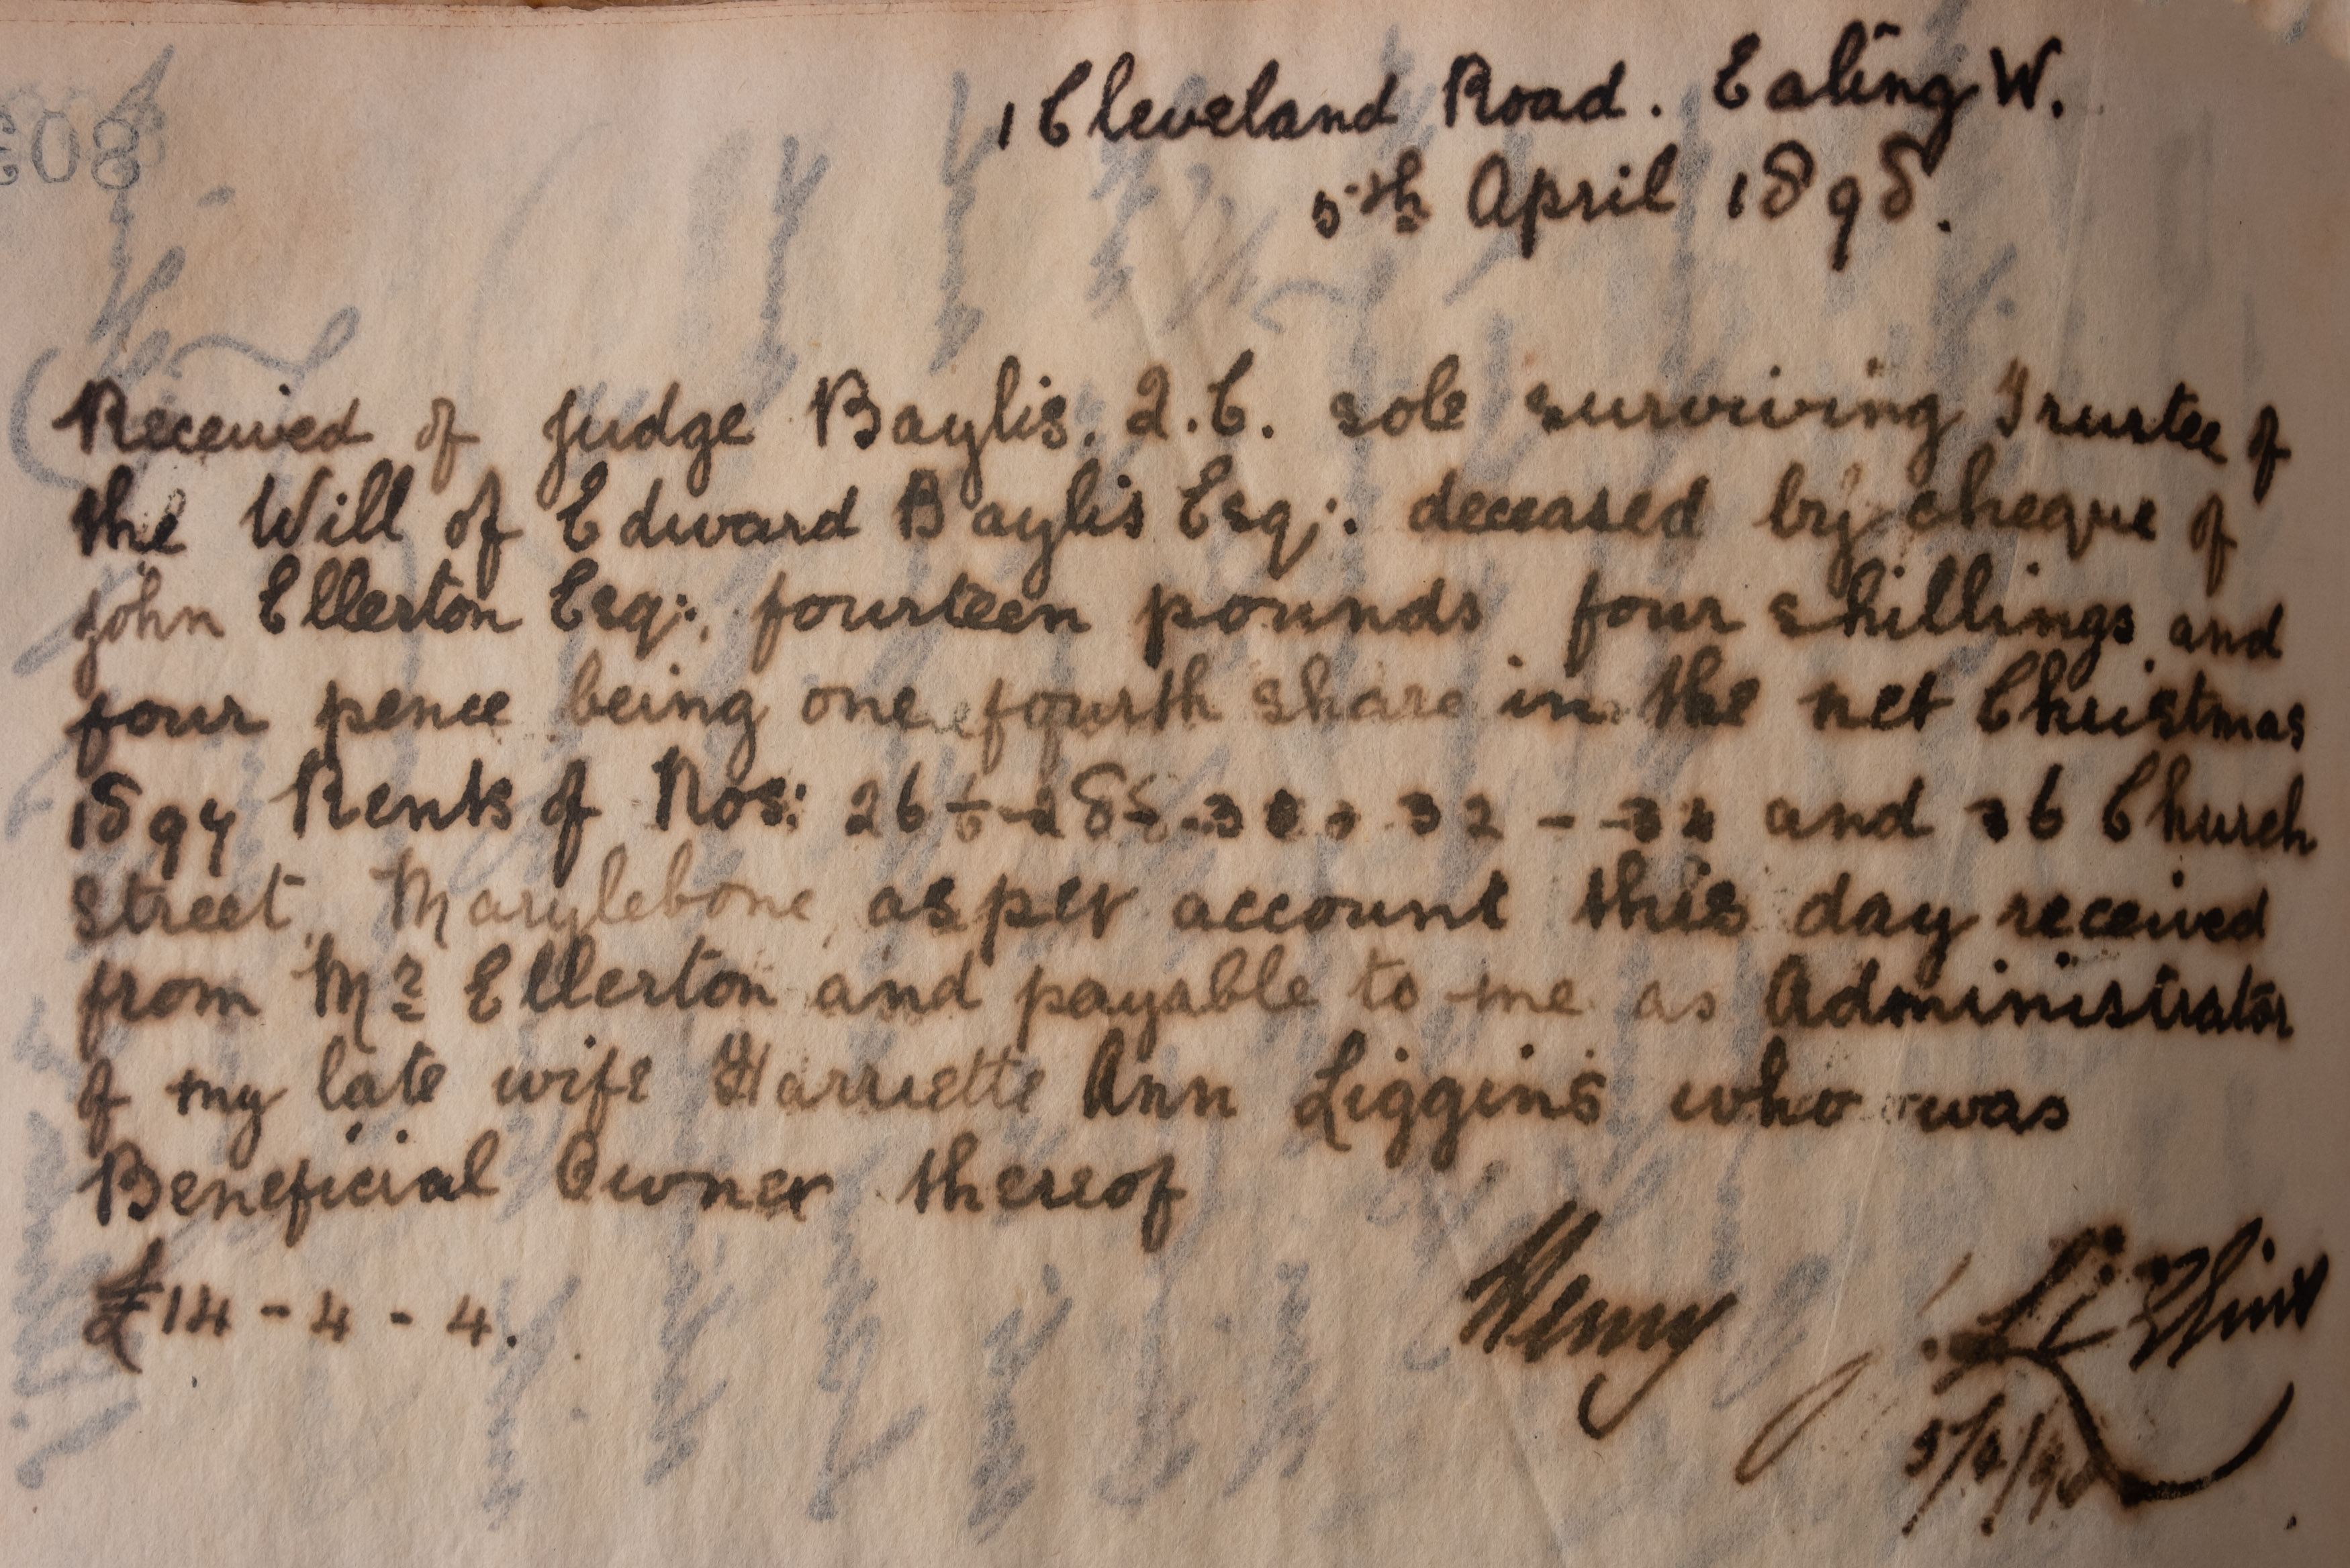 1 Cleveland Road. Ealing W.
5th April 1898.
Received of Judge Baylis. Q.C. sole surviving Trustee of
the Will of Edward Baylis Esq:. deceased by cheque of
John Ellerton Esq:, fourteen pounds four shillings and
four pence being one fourth share in the net Christmas
1897 Rents of Nos: 26 - 28 - 30 - 32 - 34 and 36 Church
Street, Marylebone, as per account this day received
from Mr Ellerton and payable to me as Administrator
of my late wife Harriette Ann Liggins who was
Beneficial Owner thereof
£14 - 4 - 4.
Henry
5/4/98